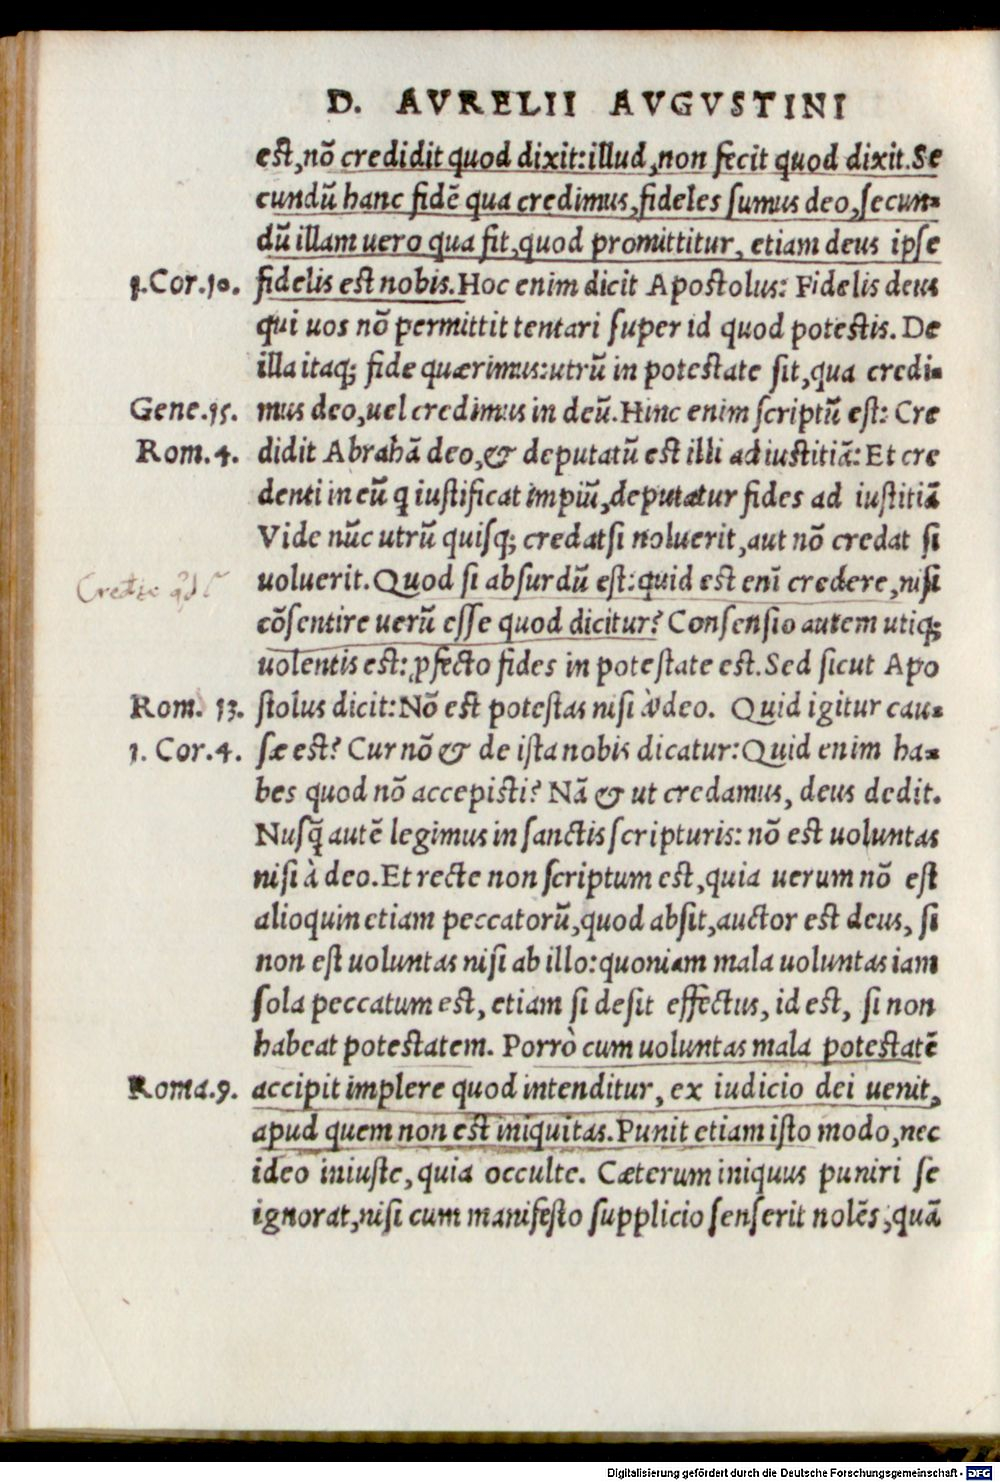 D. AVRELII AVGVSTINI
est,nõ credidit quod dixit:illud,non fecit quod dixit.Se
cundũ hanc fidẽ qua credimus,fideles ſumus deo,ſecun-
dũ illam uero qua fit,quod promittitur, etiam deus ipſe
1.Cor.10. fidelis est nobis.Hoc enim dicit Apostolus: Fidelis deus
qui uos nõ permittit tentari ſuper id quod potestis. De
illa itaq; fide quærimus:utrũ in potestate ſit,qua credi-
Gene.15. mus deo,uel credimus in deũ.Hinc enim ſcriptũ eſt: Cre
Rom.4. didit Abrahã deo,& deputatũ est illi ad iustitiã: Et cre
denti in eũ q iuſtificat impiũ,deputatur fides ad iuſtitiã
Vide nũc utrũ quiſq; credat si noluerit,aut nõ credat ſi
uoluerit.Quod ſi abſurdũ eſt:quid est eni credere,niſi
cõſentire uerũ eſſe quod dicitur? Conſenſio autem utiq;
uolentis est: ꝓfecto fides in poteſtate est.Sed sicut Apo
Rom. 13. ſtolus dicit:Nõ est poteſtas niſi à deo. Quid igitur cau-
1. Cor.4. ſæ est? Cur nõ & de iſta nobis dicatur:Quid enim ha-
bes quod nõ accepisti? Nã & ut credamus, deus dedit.
Nuſq̃ autẽ legimus in ſanctis ſcripturis: nõ est uoluntas
niſi à deo.Et recte non ſcriptum est,quia uerum nõ eſt
alioquin etiam peccatorũ,quod abſit,auctor est deus, ſi
non eſt uoluntas niſi ab illo:quoniam mala uoluntas iam
ſola peccatum est, etiam ſi deſit effectus, id est, ſi non
habeat potestatem. Porrò cum uoluntas mala potestatẽ
Roma.9. accipit implere quod intenditur, ex iudicio dei uenit,
apud quem non est iniquitas.Punit etiam iſto modo,nec
ideo iniuſte,quia occulte. Cæterum iniquus puniri ſe
ignorat,niſi cum manifeſto ſupplicio ſenſerit nolẽs,quã
Digitalisierung gefördert durch die Deutsche Forschungsgemeinschaft - DFG